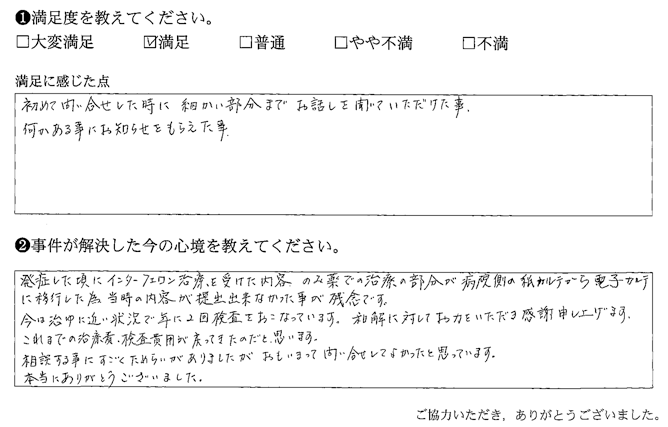 ❶満足度を教えてください。
□大変満足 ☑満足 □普通 □やや不満 □不満
満足に感じた点
初めて問い合せした時に 細かい部分まで お話しを聞いていただけた事。
何かある事にお知らせをもらえた事。
❷事件が解決した今の心境を教えてください。
発症した頃にインターフェロン治療を受けた内容 のみ薬での治療の部分が 病院側の紙カルテから電子カルテ
に移行した為 当時の内容が提出出来なかった事が残念です。
今は治ゆに近い状況で年に2回検査をおこなっています。 和解に対してお力をいただき感謝申し上げます。
これまでの治療費、検査費用が戻ってきたのだと思います。
相談する事にすごくためらいがありましたが おもいきって問い合せしてよかったと思っています。
本当にありがとうございました。
ご協力いただき、ありがとうございました。